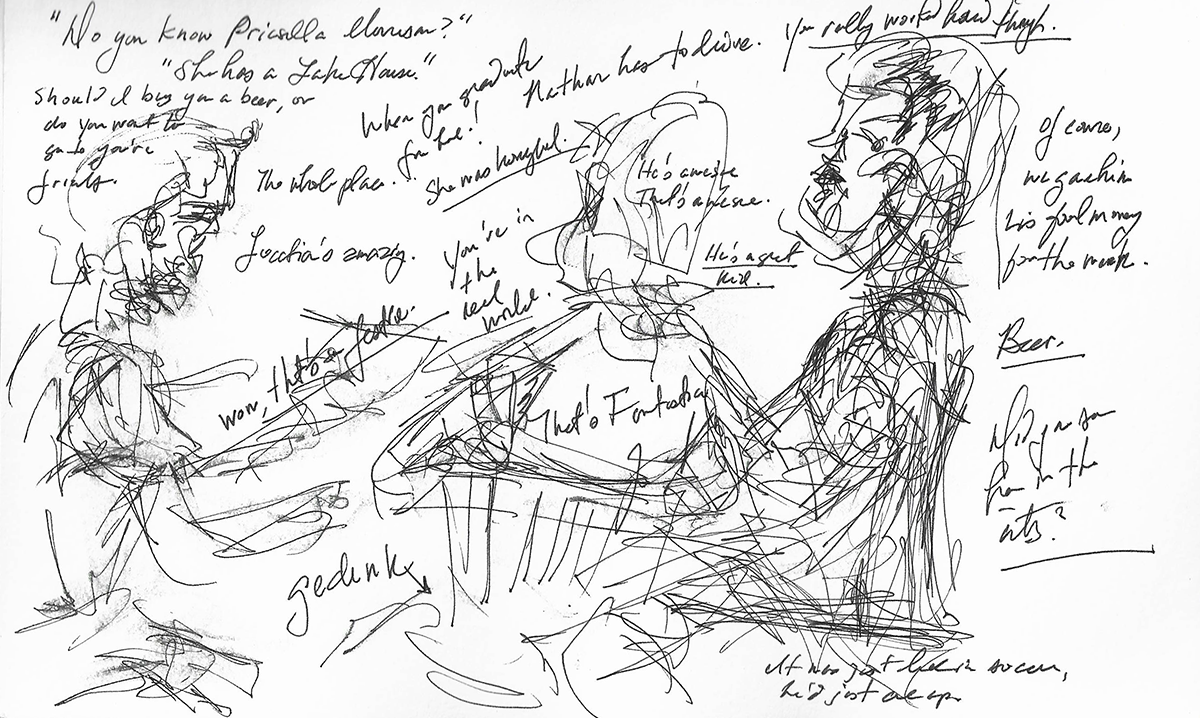 "Do you know Pricella Morrison?"
"She has a Lake House."
Should I buy you a beer, or
do you want to
go to you're
friends.
The whole place.
Location's amazing.
When you graduate
from here!
She was homeschool.
Nathan has to drive.
You really worked hard though.
You're in
the
real
world.
He's awesome
That's awesome.
He's a great
kid.
wow, that's fantastic.
That's Fantastic
Of course,
we gave him
his food money
for the week.
Beer.
Did you see
him in the
arts?
gedunk
It was just like in soccer,
he'd just